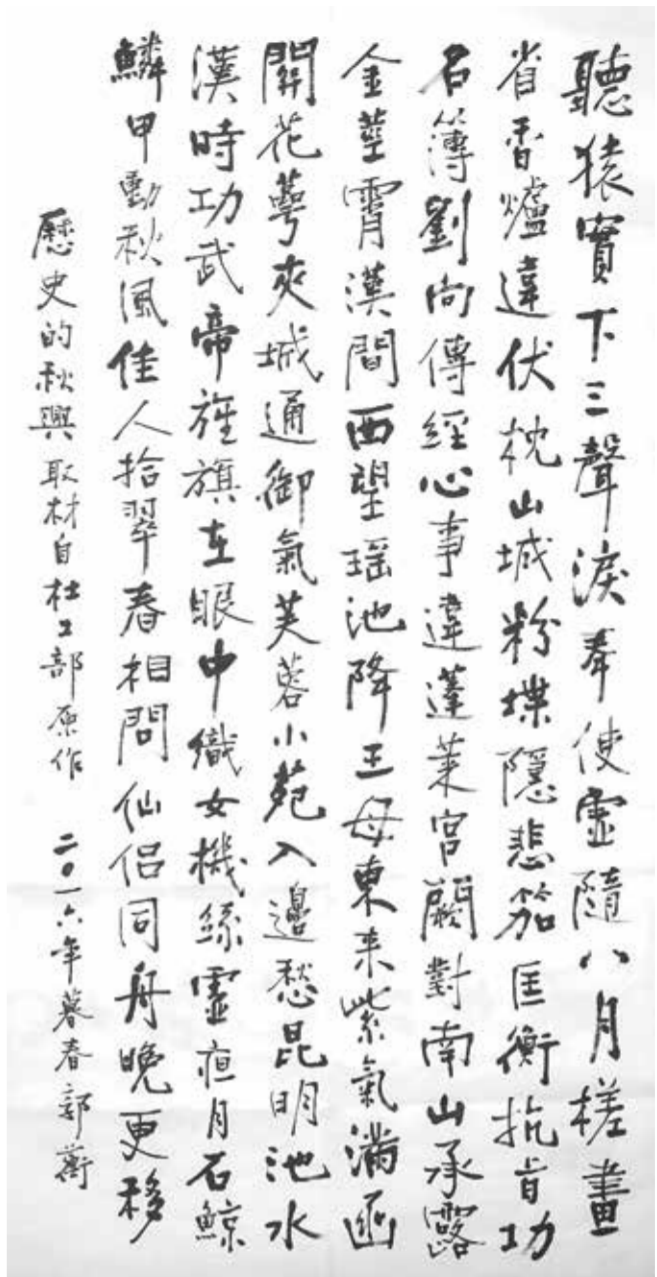 聽猿實下三聲淚奉使虛隨八月槎畫
省香爐違伏枕山城粉堞隱悲笳匡衡抗疏功
名簿劉向傳經心事違蓬萊宮闕對南山承露
金莖霄漢間西望瑶池降王母東来紫氣滿函
關花萼夾城通御氣芙蓉小苑入邊愁昆明池水
漢時功武帝旌旗在眼中織女機絲虛夜月石鯨
鱗甲動秋風佳人拾翠春相問仙侣同舟晚更移
歷史的秋興取材自杜工部原作 二〇一六年暮春郭衡